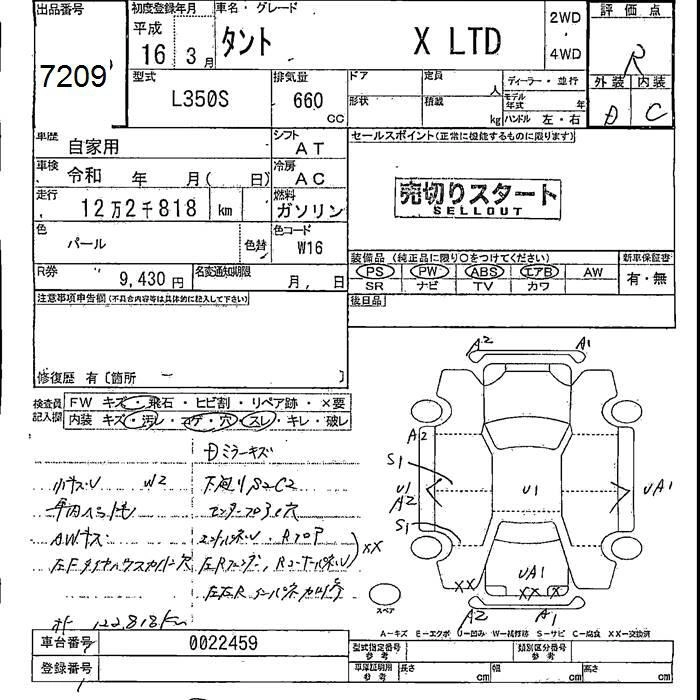 出品番号
7209
初度登録年月
平成
16 3月
車名・グレード
タント X LTD
2WD
4WD
評価点
R
外装 内装
D C
型式
L350S
排気量
660 cc
ドア
形状
定員 人
積載 kg
ディーラー・並行
モデル年式 年
ハンドル 左・右
車歴
自家用
シフト
AT
車検
令和 年 月( 日)
冷房
AC
走行
12万2千818 km
燃料
ガソリン
色
パール
色替
色コード
W16
R券
9,430円
名変通知期限
月 日
セールスポイント(正常に機能するものに限ります)
売切りスタート
SELLOUT
装備品(純正品に限り○をつけてください)
新車保証書
PS PW ABS エアB AW
有・無
SR ナビ TV カワ
後日品
注意事項申告欄(不具合内容等は具体的に記入して下さい)
修復歴 有〔箇所 ー 〕
検査員記入欄
FW キズ・飛石・ヒビ割・リペア跡・×要
内装 キズ・汚レ・コゲ・穴・スレ・キレ・破レ
ミラーキズ
小キズU W2
AWキズ
XX
122,818km
A2 A1
A2
S1
U1
A2
S1
U1
UA1
UA1
XX
XX X
A2 A1
スペア
A-キズ E-エクボ U-凹み W-補修跡 S-サビ C-腐食 XX-交換済
車台番号
0022459
登録番号
型式指定番号
参考
類別区分番号
参考
車庫証明用
参考
長さ cm
幅 cm
高さ cm